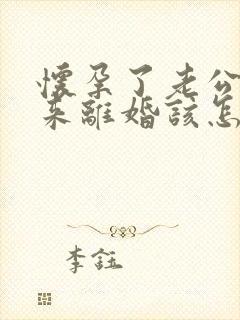 懷孕了老公
來離婚該怎
李鈺